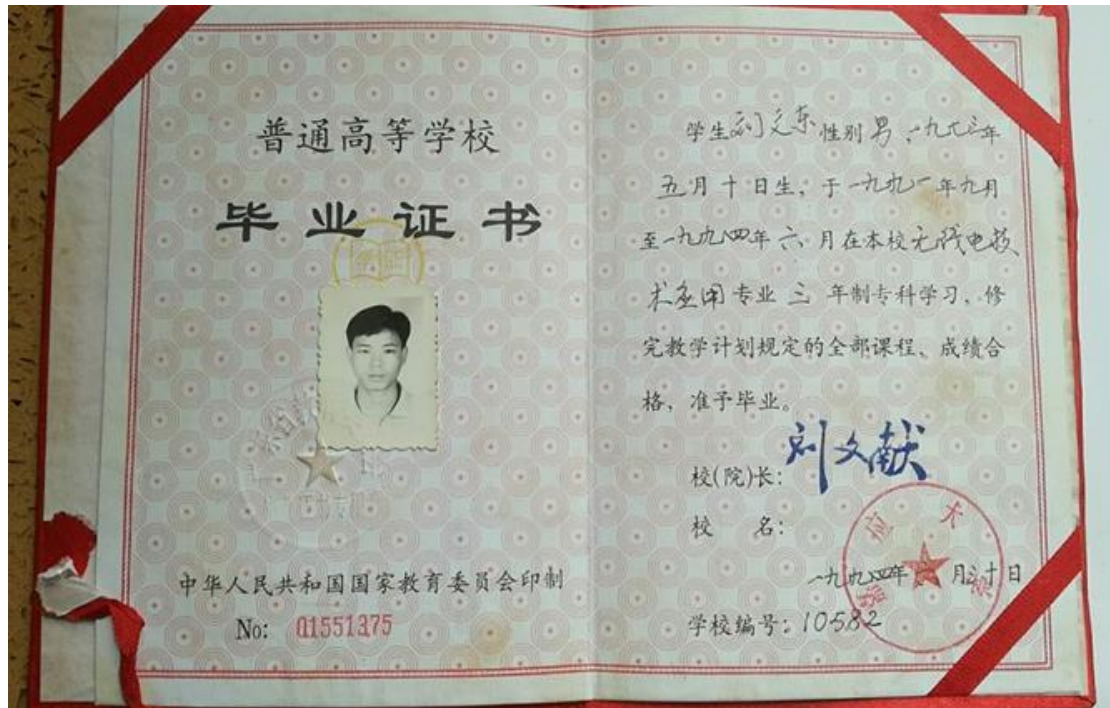 普通高等学校
毕业证书
中华人民共和国国家教育委员会印制
No: 01551375
学生刘文东性别男,一九七三年
五月十日生、于一九九一年九月
至一九九四年六月在本校无线电技
术应用专业三年制专科学习、修
完教学计划规定的全部课程、成绩合
格、准予毕业。
校(院)长: 刘文献
校 名:
嘉应大学
一九九四年六月三十日
学校编号: 10582